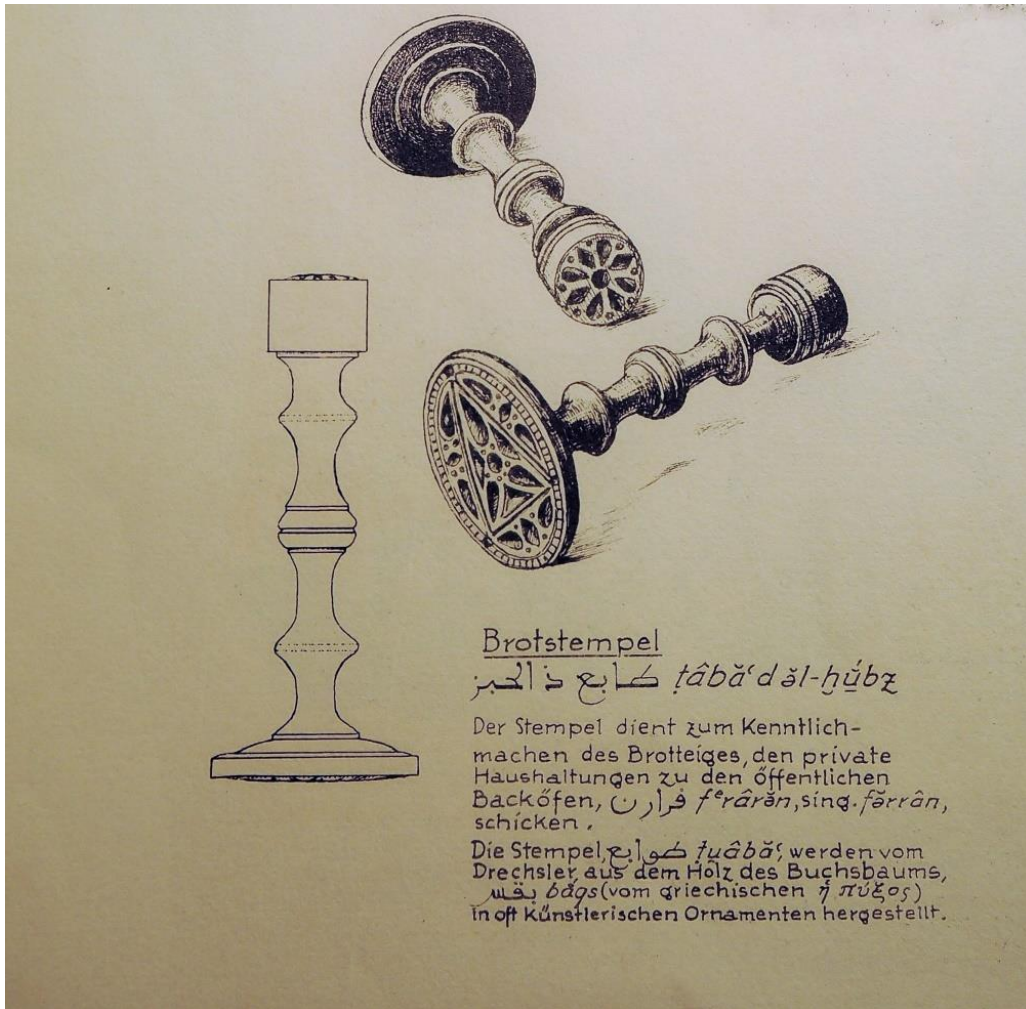 Brotstempel
طابع ذ الخبز ṭâbăʿ d ăl-ḫŭ́bz
Der Stempel dient zum Kenntlich-
machen des Brotteiges, den private
Haushaltungen zu den öffentlichen
Backöfen, فرارن fᵉrârăn, sing. fărrân,
schicken.
Die Stempel, طوابع ṭu̯âbăʿ, werden vom
Drechsler, aus dem Holz des Buchsbaums,
بقس băqs (vom griechischen ἡ πύξος)
in oft künstlerischen Ornamenten hergestellt.